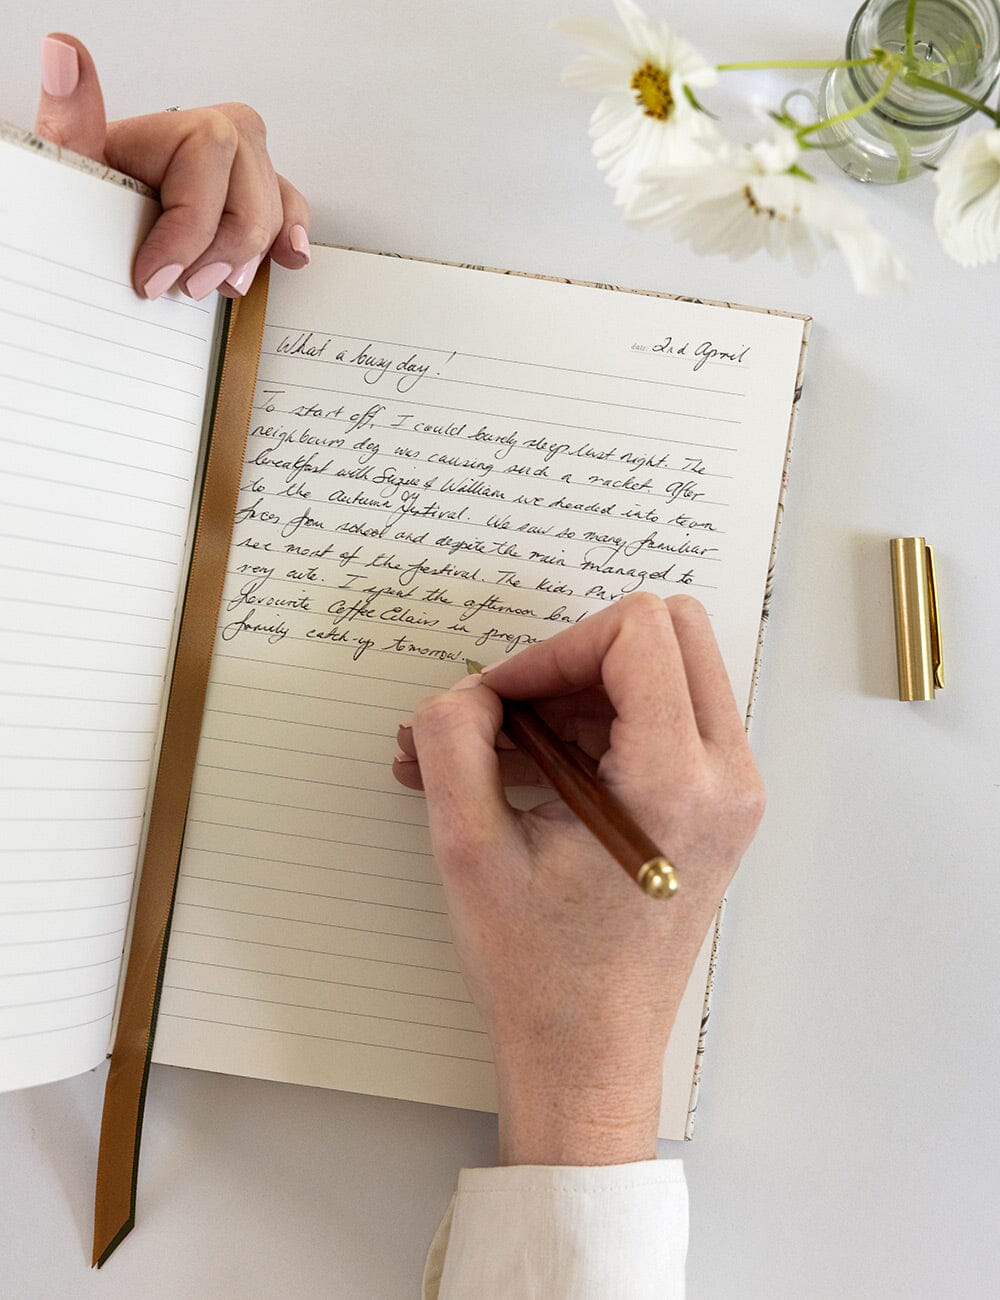 date: 2nd April
What a busy day!
To start off, I could barely sleep last night. The
neighbours dog was causing such a racket. After
breakfast with Suzie & William we headed into town
to the Autumn Festival. We saw so many familiar
faces from school and despite the rain managed to
see most of the festival. The Kids
very cute. I spent the afternoon
favourite Coffee Eclairs in
family catch-up tomorrow.